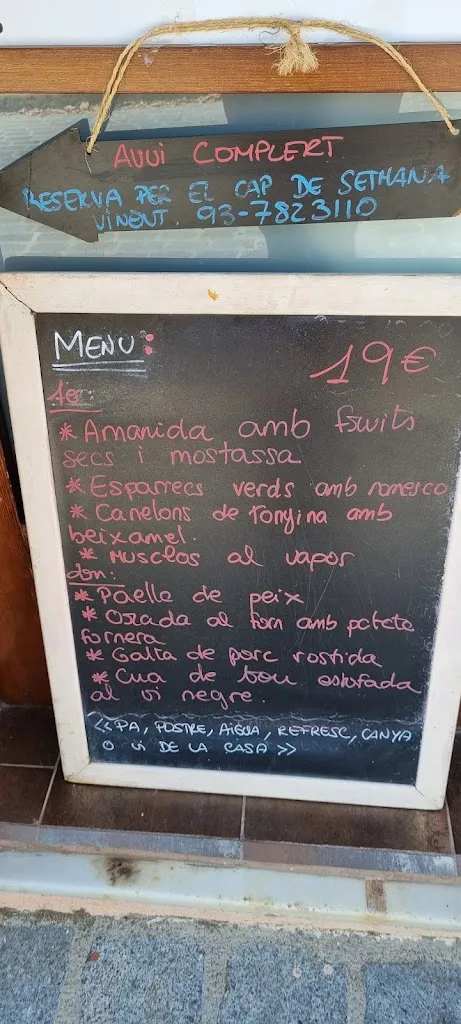 AVUI COMPLERT
RESERVA PER EL CAP DE SETMANA
VINENT. 93-7823110
MENU:
19€
1er:
* Amanida amb fruits
secs i mostassa
* Esparrecs verds amb romesco
* Canelons de Tonyina amb
beixamel.
* Musclos al vapor
2on:
* Paella de peix
* Orada al forn amb patata
fornera
* Galta de porc rostida
* Cua de bou estofada
al vi negre.
<<PA, POSTRE, AIGUA, REFRESC, CANYA
O VI DE LA CASA>>